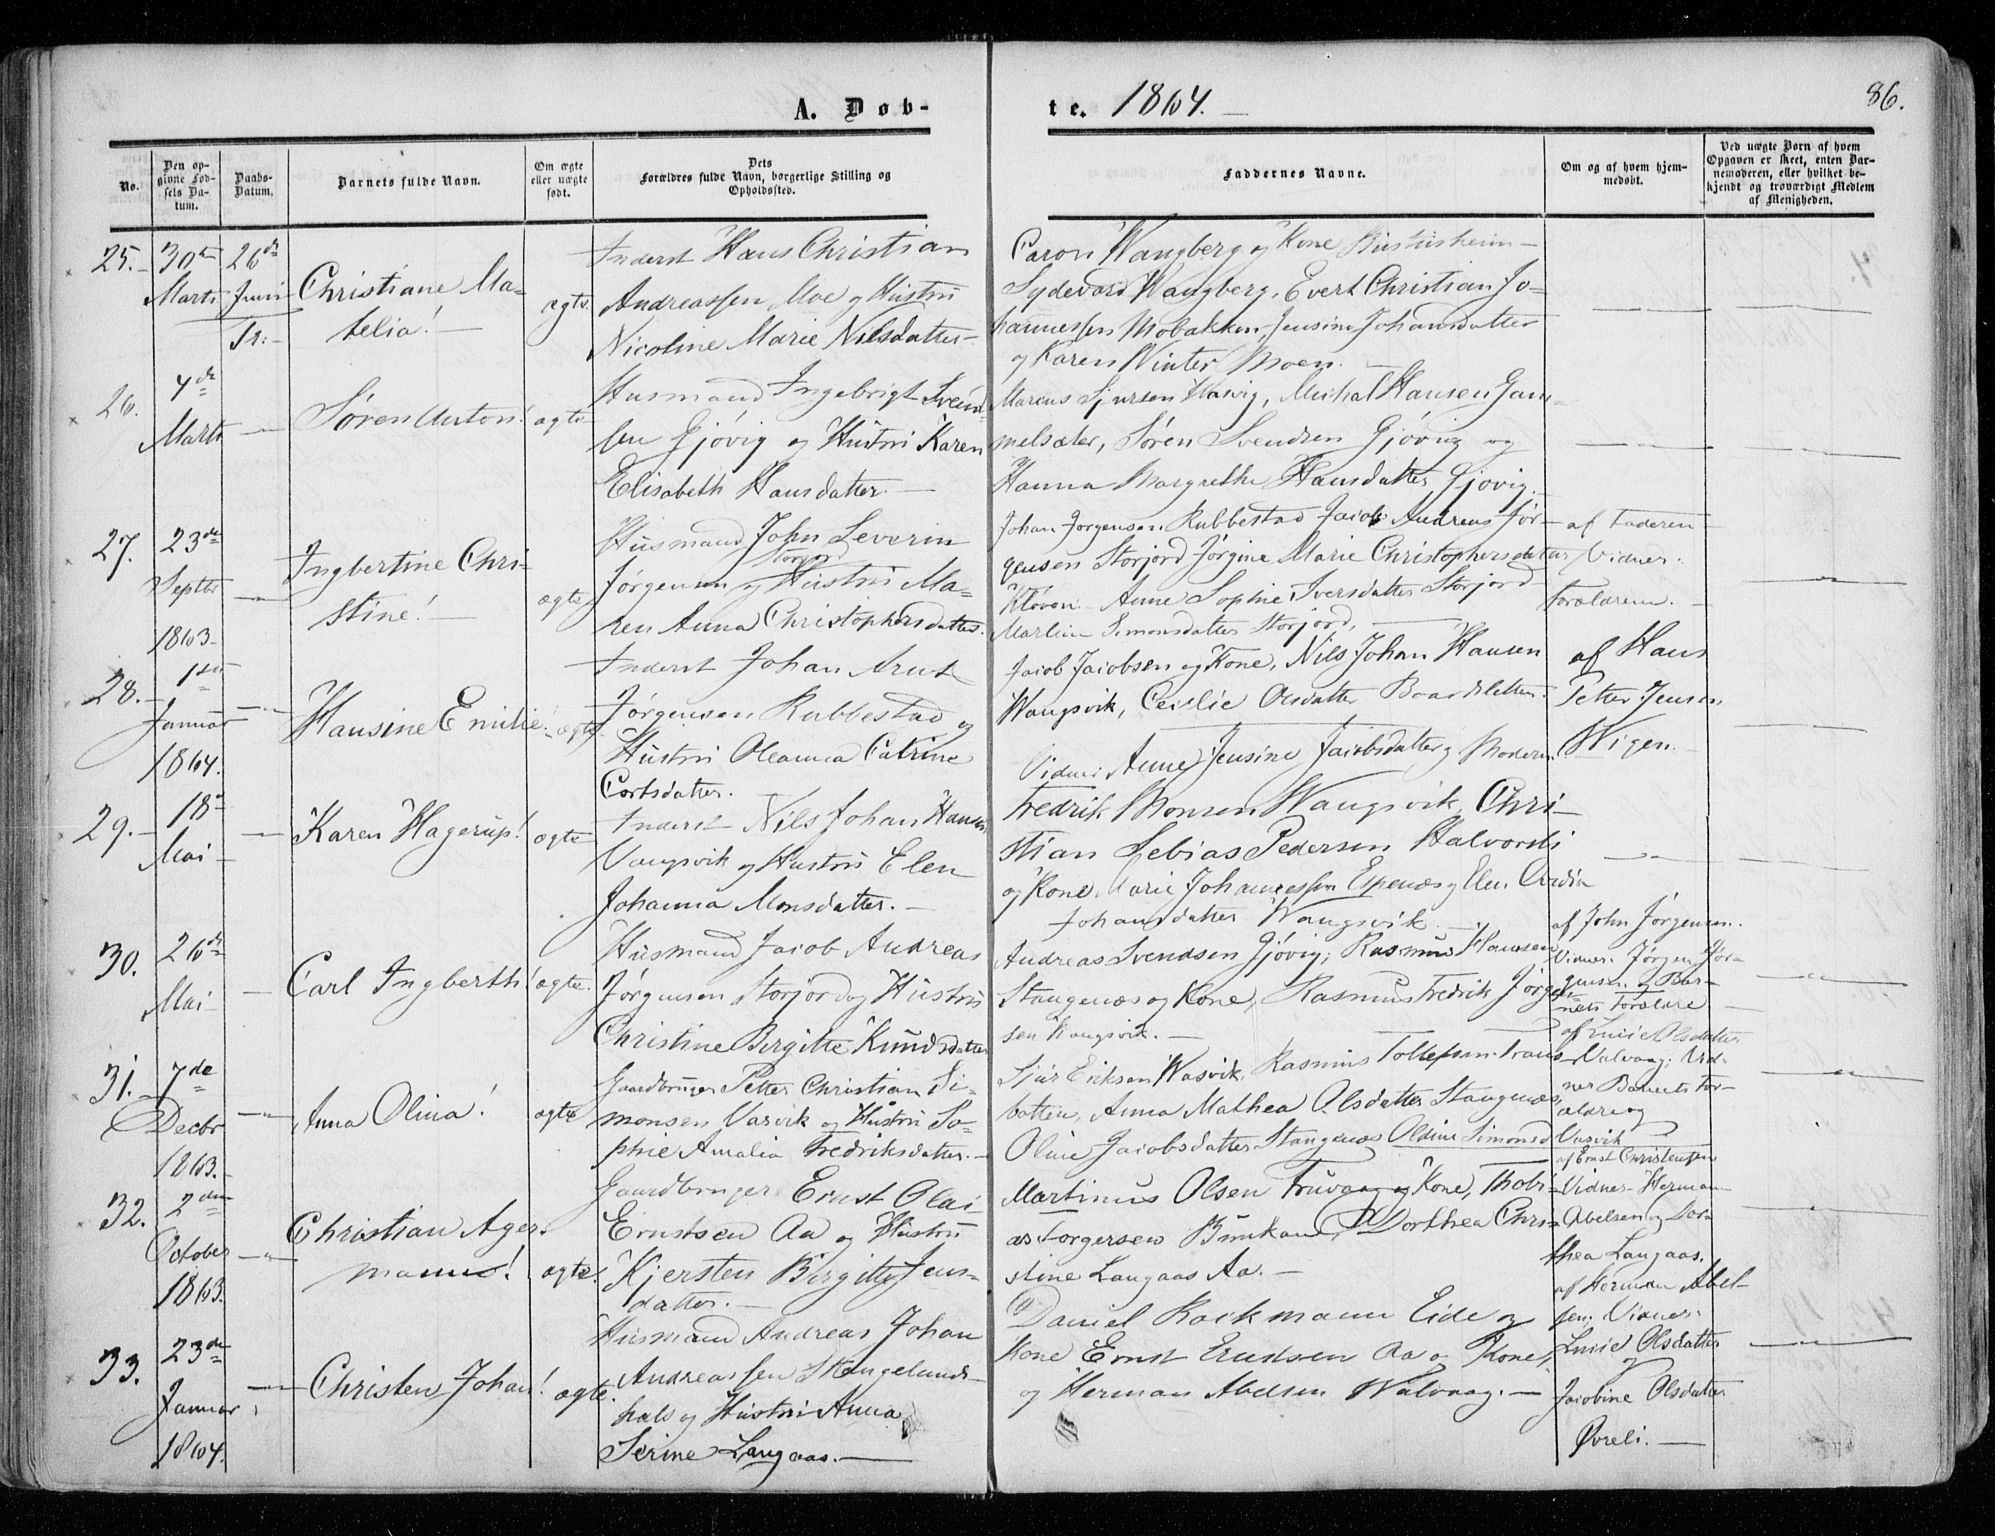 A. Døb-
te. 1864.
86.
No.
Den op-
givne Fød-
sels Da-
tum.
Daabs-
Datum.
Barnets fulde Navn.
Om ægte
eller uægte
født.
Dets
Forældres fulde Navn, borgerlige Stilling og
Opholdssted.
Faddernes Navne.
Om og af hvem hjem-
medøbt.
Ved uægte Børn af hvem
Opgaven er skeet, enten Bar-
nemoderen, eller hvilket be-
kjendt og troværdigt Medlem
af Menigheden.
25.
30te
Marts
26de
Juni
Christiane Ma-
telia!
ægte
Inderst Hans Christian
Andreassen Moe og Hustru
Nicoline Marie Nilsdatter
Wangberg og Kone
Wangberg, Evert Christian Jo-
hannessen Mobakken, Jensine Johansdatter
og Karen Winter Moen.
26.
4de
Marts
Søren Anton!
ægte
Husmand Ingebrigt Svend-
sen Gjövig og Hustru Karen
Elisabeth Hansdatter.
Marcus Sjursen Wasvig, Michal Hansen Gam-
melsæter, Søren Svendsen Gjövig og
Hanna Margrethe Hansdatter Gjövig.
27.
23de
Septbr
1863
Ingbertine Chri-
stine!
ægte
Husmand John Severin
Storjord
Jørgensen og Hustru Ma-
ren Anna Christophersdatter.
Johan Jørgensen Rubbestad Jacob Andreas Jør-
gensen Storjord Jørgine Marie Christophersdatter
Kløven. Anne Sophie Iversdatter Storjord
Simonsdatter Storjord,
af Faderen
Vidner:
Forældrene.
28.
1ste
Januar
1864.
Hansine Emilie
ægte
Inderst Johan Arnt
Jørgensen Rubbestad og
Hustru Oleanna Catrine
Cortsdatter.
Jacob Jacobsen og Kone, Nils Johan Hansen
Wangsvik, Cecilie Olsdatter Baardsletten.
Vidner: Anne Jensine Jacobsdatter og Moderen
af Hans
Petter Jensen
Wigen.
29.
18de
Mai
Karen Hagerup!
ægte
Inderst Nils Johan Hansen
Vangsvik og Hustru Elen
Johanna Monsdatter.
Fredrik Monsen Wangsvik, Chri-
stian Sebias Pedersen Halvorsli
og Kone, Marie Johannessen Espenæs og Elen
Johansdatter Wangsvik.
30.
26de
Mai
Carl Ingberth!
ægte.
Husmand Jacob Andreas
Jørgensen Storjord og Hustru
Christine Birgitte Knudsdatter
Andreas Svendsen Gjövig, Rasmus Hansen
Stangenæs og Kone, Rasmus Fredrik Jørgen-
sen Wangsvik.
af John Jørgensen.
Vidner: Jørgen Jør-
gensen og Bar-
nets Forældre
31.
7de
Decbr
1863.
Anna Olina!
ægte
Gaardbruger Petter Christian Si-
monsen Vasvik og Hustru So-
phie Amalia Fredriksdatter.
Sjur Eriksen Wasvik, Rasmus Tollefsen Trane-
botten, Anna Mathea Olsdatter Stangenæs,
Oline Jacobsdatter Stangenæs Oldine Simonsd
af Olsdatter
Valvaag; Vid-
ner Barnets For-
ældre og
Vasvik
32.
2den
October
1863.
Christian Ager-
manus!
ægte.
Gaardbruger Ernst Olai
Ernstsen Aa og Hustru
Kjersten Birgitte Jens-
datter.
Martinus Olsen Truvaag og Kone, Thobi-
as Torgersen, Dorthea Chri-
stine Langaas Aa.
af Ernst Christensen
Vidner Herman
Abelsen og Dor-
thea Langaas.
33.
23de
Januar
1864.
Christen Johan!
ægte.
Husmand Andreas Johan
Andreassen Stangelands-
hals og Hustru Anna
Serine Langaas.
Daniel Rackmann Eide og
Kone Ernst Aa og Kone,
og Herman Abelsen Walvaag.
af Herman Abel-
sen. Vidner:
Lucie Olsdatter
og
Jacobine Olsdatter
Øvreli.